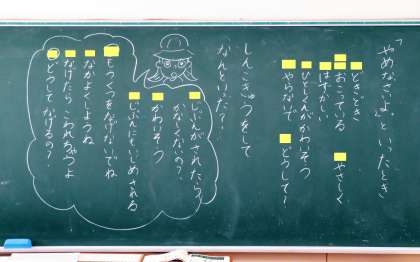 「やめなさいよ。」といったとき
どきどき
おこっている
やさしく
はずかしい
ひとくんがかわいそう
やらないで
どうして〜
しんこきゅうをして
「なんといった？」
じぶんがされたら
かなしくないの？
かわいそう
じぶんにもいじめられる
もうくつをなげないでね
なかよくしようね
なげたらこわれちゃうよ
どうしてなげるの？